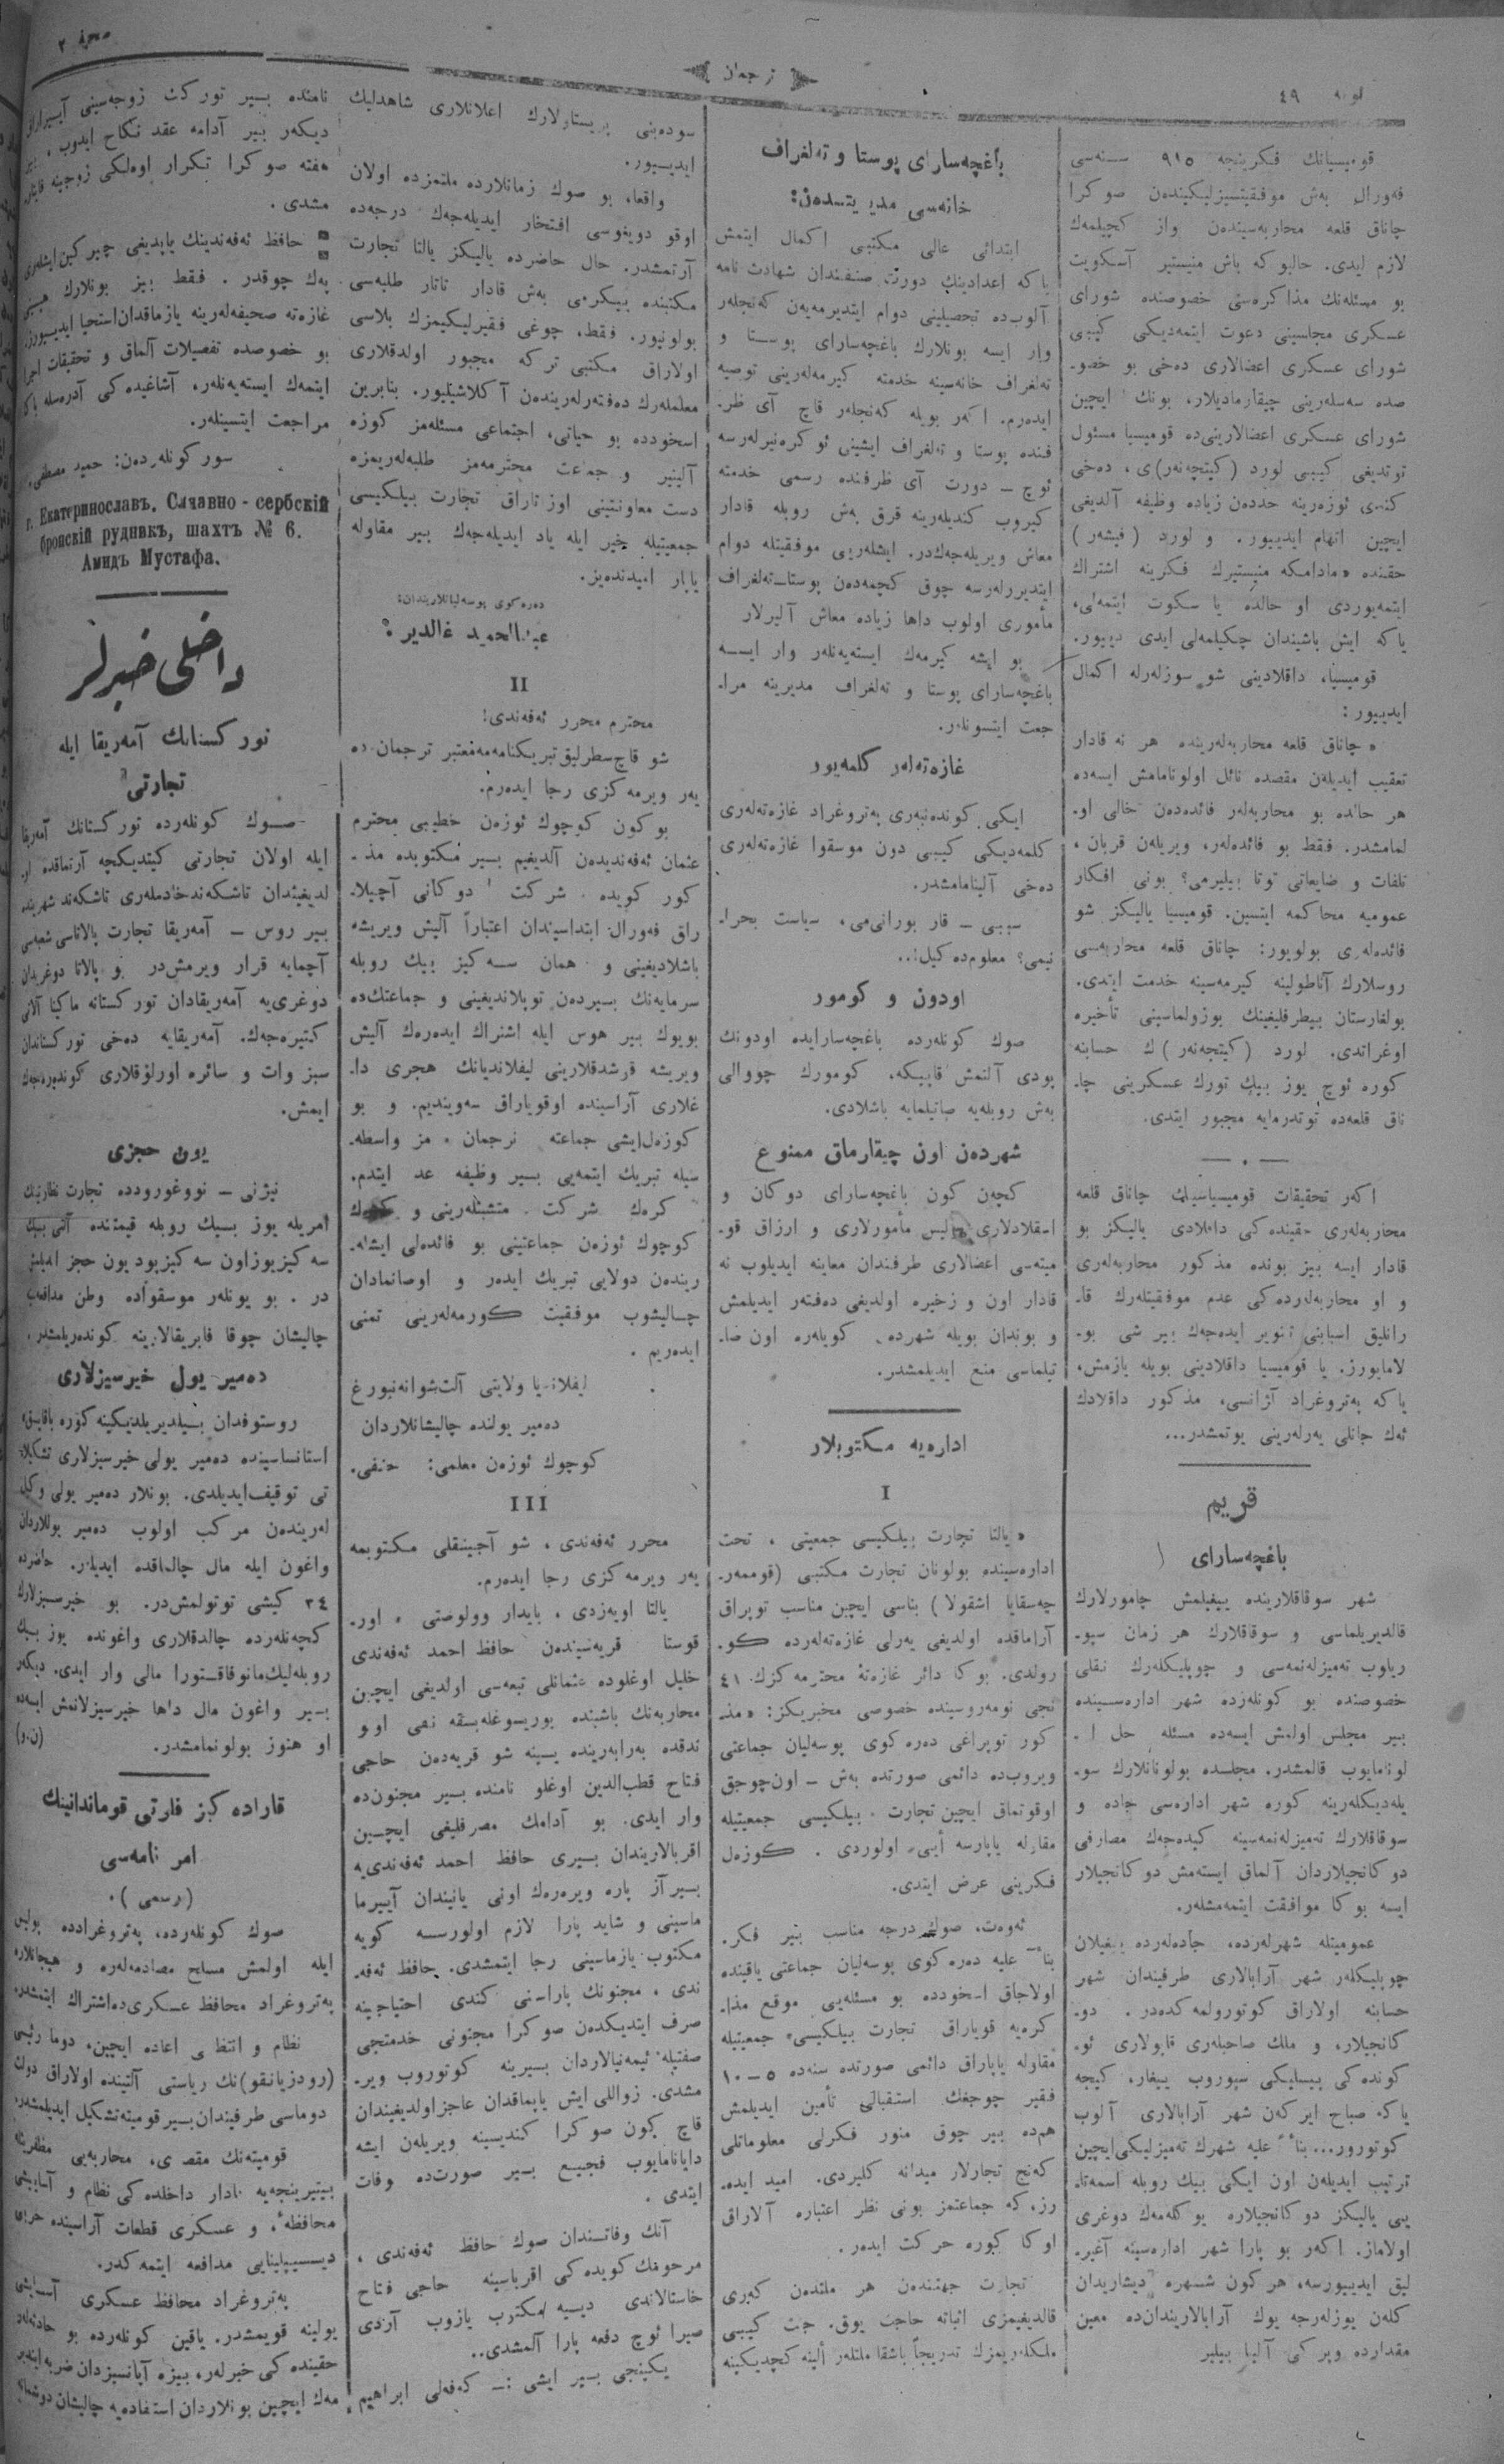 نومه ٤٩
ترجمان
صحیفه ٢
قومیسیانك فكرینجه ٩١٥ سنه‌سی
فه‌ورال به‌ش موفقیتسیزلیكیندن صوكرا
چاناق قلعه محاربه‌سیندن واز كچیلمه‌ك
لازم ایدی. حالبوكه باش منیستیر آسكویت
بو مسئله‌نك مذاكره‌سی خصوصنده شورای
عسكری مجلسینی دعوت ایتمه‌دیكی كیبی
شورای عسكری اعضالاری ده‌خی بو خصو-
صده سه‌سله‌رینی چیقارمادیلار، بونك ایچین
شورای عسكری اعضالارینی‌ده قومیسیا مسئول
توتدیغی كیبی لورد (كیتچه‌نه‌ر)ی، ده‌خی
كندی ئوزه‌رینه حددن زیاده وظیفه آلدیغی
ایچین اتهام ایدییور. و لورد (فیشه‌ر)
حقنده «مادامكه منیستیرك فكرینه اشتراك
ایتمه‌یوردی او حالده یا سكوت ایتمه‌لی،
یاكه ایش باشیندان چكیلمه‌لی ایدی دییور.
قومیسیا، داقلادینی شو سوزله‌رله اكمال
ایدییور:
«چاناق قلعه محاربه‌له‌رینده هر نه قادار
تعقیب ایدیله‌ن مقصده نائل اولونامامش ایسه‌ده
هر حالده بو محاربه‌له‌ر فائده‌دن خالی او-
لمامشدر. فقط بو فائده‌له‌ر، ویریله‌ن قربان،
تلفات و ضایعاتی توتا بیلیرمی؟ بونی افكار
عمومیه محاكمه ایتسین. قومیسیا یالیكز شو
فائده‌له‌ری بولویور: چاناق قلعه محاربه‌سی
روسلارك آناطولینه كیرمه‌سینه خدمت ایتدی.
بولغارستان بیطرفلیغینك بوزولماسینی تأخیره
اوغراتدی. لورد (كیتچه‌نه‌ر)ك حسابنه
كوره ئوچ یوز بیك تورك عسكرینی چا-
ناق قلعه‌ده توتدرمایه مجبور ایتدی.
اكه‌ر تحقیقات قومیسیاسینك چاناق قلعه
محاربه‌له‌ری حقینده‌كی داقلادی یالیكز بو
قادار ایسه بیز بونده مذكور محاربه‌له‌ری
و او محاربه‌له‌رده‌كی عدم موفقیتله‌رك قا-
رانلیق اسبابنی تنویر ایده‌جه‌ك بیر شی بو-
لامایورز. یا قومیسیا داقلادینی بویله یازمش،
یاكه په‌تروغراد آژانسی، مذكور داقلادك
ئه‌ك جانلی یه‌رله‌رینی یوتمشدر...
قریم
باغچه‌سارای
شهر سوقاقلارینده ییغیلمش چامورلارك
قالدیریلماسی و سوقاقلارك هر زمان سپو-
ریلوب ته‌میزله‌نمه‌سی و چوپلیكله‌رك نقلی
خصوصنده بو كونله‌رده شهر اداره‌سینده
بیر مجلس اولمش ایسه‌ده مسئله حل ا-
لونامایوب قالمشدر. مجلسده بولونانلارك سو-
یله‌دیكله‌رینه كوره شهر اداره‌سی جاده و
سوقاقلارك ته‌میزله‌نمه‌سینه كیده‌جه‌ك مصارفی
دوكانجیلاردان آلماق ایسته‌مش دوكانجیلار
ایسه بوكا موافقت ایتمه‌مشله‌ر.
عمومیتله شهرله‌رده، جاده‌له‌رده ییغیلان
چوپلیكله‌ر شهر آرابالاری طرفیندان شهر
حسابنه اولاراق كوتورولمه‌كده‌در. دو-
كانجیلار، و ملك صاحبله‌ری قابولاری ئو-
كونده‌كی پیسلیكی سپوروب ییغار، كیجه
یاكه صباح ایركه‌ن شهر آرابالاری آلوب
كوتورور... بناءً علیه شهرك ته‌میزلیكی‌ایچین
ترتیب ایدیله‌ن اون ایكی بیك روبله اسمه‌تا-
یی یالیكز دوكانجیلاره یوكله‌مه‌ك دوغری
اولاماز. اكه‌ر بو پارا شهر اداره‌سینه آغیر-
لیق ایدییورسه، هركون شهره دیشاریدان
كله‌ن یوزله‌رجه یوك آرابالاریندان‌ده معین
مقدارده ویركی آلیا بیلیر
باغچه‌سارای پوستا و ته‌لغراف
خانه‌سی مدیریتندن:
ابتدائی عالی مكتبی اكمال ایتمش
یاكه اعدادینك دورت صنفندان شهادت‌نامه
آلوب‌ده تحصیلینی دوام ایتدیرمه‌یه‌ن كه‌نجله‌ر
وار ایسه بونلارك باغچه‌سارای پوستا و
ته‌لغراف خانه‌سینه خدمته كیرمه‌له‌رینی توصیه
ایده‌رم. اكه‌ر بویله كه‌نجله‌ر قاچ آی ظر-
فنده پوستا و ته‌لغراف ایشینی ئوكره‌نیرله‌رسه
ئوچ – دورت آی ظرفنده رسمی خدمته
كیروب كندیله‌رینه قرق به‌ش روبله قادار
معاش ویریله‌جه‌ك‌در. ایشله‌ریی موفقیتله دوام
ایتدیررله‌رسه چوق كچمه‌دن پوستا-ته‌لغراف
مأموری اولوب داها زیاده معاش آلیرلار
بو ایشه كیرمه‌ك ایسته‌یه‌نله‌ر وار ایسه
باغچه‌سارای پوستا و ته‌لغراف مدیرینه مرا-
جعت ایتسونله‌ر.
غازه‌ته‌له‌ر كلمه‌یور
ایكی كونده‌نبه‌ری په‌تروغراد غازه‌ته‌له‌ری
كلمه‌دیكی كیبی دون موسقوا غازه‌ته‌له‌ری
ده‌خی آلینامامشدر.
سببی – قار بورانی‌می، سیاست بحرا-
نیمی؟ معلوم‌ده‌كیل...
اودون و كومور
صوك كونله‌رده باغچه‌سارایده اودونك
پودی آلتمش قاپیكه، كومورك چووالی
به‌ش روبله‌یه صاتیلمایه باشلادی.
شهردن اون چیقارماق ممنوع
كچه‌ن كون باغچه‌سارای دوكان و
اسقلادلاری پولیس مأمورلاری و ارزاق قو-
میته‌سی اعضالاری طرفندان معاینه ایدیلوب نه
قادار اون و زخیره اولدیغی ده‌فته‌ر ایدیلمش
و بوندان بویله شهردن كویله‌ره اون صا-
تیلماسی منع ایدیلمشدر.
اداره‌یه مكتوبلار
I
«یالتا تجارت بیلكیسی جمعیتی، تحت
اداره‌سینده بولونان تجارت مكتبی (قوممه‌ر-
چه‌سقایا اشقولا) بناسی ایچین مناسب توپراق
آراماقده اولدیغی یه‌رلی غازه‌ته‌له‌رده كو-
رولدی. بوكا دائر غازه‌تهٔ محترمه‌كزك ٤١
نجی نومه‌روسینده خصوصی مخبریكز: «مذ-
كور توپراغی ده‌ره‌كوی پوسه‌لیان جماعتی
ویروب‌ده دائمی صورتده به‌ش – اون‌چوجق
اوقوتماق ایچین تجارت بیلكیسی جمعیتیله
مقاوله یاپارسه أیی، اولوردی. كوزه‌ل
فكرینی عرض ایتدی.
ئه‌وه‌ت، صوك درجه مناسب بیر فكر.
بناءً علیه ده‌ره‌كوی پوسه‌لیان جماعتی یاقینده
اولاجاق اسخودده بو مسئله‌یی موقع مذا-
كره‌یه قویاراق تجارت بیلكیسی جمعیتیله
مقاوله یاپاراق دائمی صورتده سنه‌ده ٥–١٠
فقیر چوجغك استقبالی تأمین ایدیلمش
هم‌ده بیر چوق منور فكرلی معلوماتلی
كه‌نج تجارلار میدانه كلیردی. امید ایده-
رز، كه جماعتمز بونی نظر اعتباره آلاراق
اوكا كوره حركت ایده‌ر.
تجارت جهتندن هر ملتدن كه‌ری
قالدیغیمزی اثباته حاجت یوق. جت كیبی
ملكله‌ریمزك تدریجاً باشقا ملتله‌ر ألینه كچدیكینه
سوده‌بنی پریستاولارك اعلانلاری شاهدلیك
ایدییور.
واقعا، بو صوك زمانلارده ملتمزده اولان
اوقو دویغوسی افتخار ایدیله‌جه‌ك درجه‌ده
آرتمشدر. حال حاضرده یالیكز یالتا تجارت
مكتبنده ییكرمی به‌ش قادار تاتار طلبه‌سی
بولونیور. فقط، چوغی فقیرلیكیمزك بلاسی
اولاراق مكتبی تركه مجبور اولدقلاری
معلمله‌رك ده‌فته‌رله‌ریندن آكلاشیلیور. بنابرین
اسخودده بو حیاتی، اجتماعی مسئله‌مز كوزه
آلینیر و جماعت محترمه‌مز طلبه‌له‌ریمزه
دست معاونتینی اوزاتاراق تجارت بیلكیسی
جمعیتیله خیر ایله یاد ایدیله‌جه‌ك بیر مقاوله
یاپار امیدنده‌یز.
ده‌ره‌كوی پوسه‌لیانلاریندان:
عبدالحمید غالدیر؟
II
محترم محرر ئه‌فه‌ندی!
شو قاچ سطرلیق تبریكنامه‌مه معتبر ترجمان‌ده
یه‌ر ویرمه‌كزی رجا ایده‌رم.
بو كون كوچوك ئوزه‌ن خطیبی محترم
عثمان ئه‌فه‌ندیدن آلدیغیم بیر مكتوبده مذ-
كور كویده شركت دوكانی آچیلا-
راق فه‌ورال ابتداسیندان اعتباراً آلیش ویریشه
باشلادیغینی و همان سه‌كیز بیك روبله
سرمایه‌نك بیردن توپلاندیغینی و جماعتك‌ده
بویوك بیر هوس ایله اشتراك ایده‌ره‌ك آلیش
ویریشه قرشدقلارینی لیفلاندیانك هجری دا-
غلاری آراسینده اوقویاراق سه‌ویندیم. و بو
كوزه‌ل‌ایشی جماعته ترجمان‌مز واسطه-
سیله تبریك ایتمه‌یی بیر وظیفه عد ایتدم.
كره‌ك شركت متشبثله‌رینی و كره‌ك
كوچوك ئوزه‌ن جماعتینی بو فائده‌لی ایشله-
ریندن دولایی تبریك ایده‌ر و اوصانمادان
چالیشوب موفقیت كورمه‌له‌رینی تمنی
ایده‌ریم.
لیفلاندیا ولایتی آلت‌شوانه‌نبورغ
ده‌میر یولنده چالیشانلاردان
كوچوك ئوزه‌ن معلمی: حنفی.
III
محرر ئه‌فه‌ندی، شو آجینقلی مكتوبمه
یه‌ر ویرمه‌كزی رجا ایده‌رم.
یالتا اویه‌زدی، بایدار وولوصتی، اور-
قوستا قریه‌سیندن حافظ احمد ئه‌فه‌ندی
خلیل اوغلوده عثمانلی تبعه‌سی اولدیغی ایچین
محاربه‌نك باشینده بوریسوغله‌بسقه نفی اولو
ندقده به‌رابه‌رینده یینه شو قریه‌دن حاجی
فتاح قطب‌الدین اوغلو نامنده بیر مجنون‌ده
وار ایدی. بو آدامك مصرفلیغی ایچین
اقربالاریندان بیری حافظ احمد ئه‌فه‌ندی‌یه
بیر آز پاره ویره‌ره‌ك اونی یانیندان آییرما
ماسینی و شاید پارا لازم اولورسه كویه
مكتوب یازماسینی رجا ایتمشدی. حافظ ئه‌فه-
ندی، مجنونك پاراسنی كندی احتیاجینه
صرف ایتدیكدن صوكرا مجنونی خدمتجی
صفتیله نیمه‌تیالاردان بیرینه كوتوروب ویر-
مشدی. زواللی ایش یاپماقدان عاجز اولدیغیندان
قاچ كون صوكرا كندیسینه ویریله‌ن ایشه
دایانامایوب فجیع بیر صورت‌ده وفات
ایتدی.
آنك وفاتندان صوك حافظ ئه‌فه‌ندی،
مرحومك كویده‌كی اقرباسینه حاجی فتاح
خاستالاندی دییه مكتوب یازوب آزدی
صیرا ئوچ دفعه پارا آلمشدی..
یكینجی بیر ایشی :– كه‌فه‌لی ابراهیم
نامنده بیر تورك زوجه‌سینی آییراراق
دیكه‌ر بیر آدامه عقد نكاح ایدوب، بیر
هفته صوكرا تكرار اوه‌لكی زوجینه قایتار-
مشدی.
حافظ ئه‌فه‌ندینك یاپدیغی چیركین ایشله‌ری
په‌ك چوقدر. فقط بیز بونلارك هپسینی
غازه‌ته صحیفه‌له‌رینه یازماقدان استحیا ایدییورز.
بو خصوصده تفصیلات آلماق و تحقیقات اجرا
ایتمه‌ك ایسته‌یه‌نله‌ر، آشاغیده‌كی آدره‌سله باكا
مراجعت ایتسینله‌ر.
سوركونله‌ردن: حمید مصطفی.
г. Екатеринославъ. Славяно - сербскій
бронскій рудникъ, шахтъ № 6.
Амидъ Мустафа.
داخلی خبرلر
توركستانك آمه‌ریقا ایله
تجارتی
صوك كونله‌رده توركستانك آمه‌ریقا
ایله اولان تجارتی كیتدیكچه آرتماقده او-
لدیغیندان تاشكه‌ند خادمله‌ری تاشكه‌ند شهرینده
بیر روس – آمه‌ریقا تجارت پالاتاسی شعبه‌سی
آچمایه قرار ویرمش‌در. بو پالاتا دوغریدان
دوغری‌یه آمه‌ریقادان توركستانه ماكینا آلاتی
كتیره‌جه‌ك. آمه‌ریقایه ده‌خی توركستاندان
سبزوات و سائره اورلوقلاری كوندیره‌جه‌ك
ایمش.
یون حجزی
نیژنی – نووغورودده تجارت نظارتینك
امریله یوز بیك روبله قیمتنده آلتی بیك
سه‌كیزیوزاون سه‌كیزپود یون حجز ایدیلمش
در. بو یونله‌ر موسقواده وطن مدافعه‌سینه
چالیشان چوقا فابریقالارینه كونده‌ریلمشدر.
ده‌میر یول خیرسیزلاری
روستوفدان بیلدیریلدیكینه كوره باتایسق
استانساسینده ده‌میر یولی خیرسیزلاری تشكیلا-
تی توقیف‌ایدیلدی. بونلار ده‌میر یولی وكیل
له‌ریندن مركب اولوب ده‌میر یوللاردان
واغون ایله مال چالماقده ایدیلر. حاضرده
٢٤ كیشی توتولمش‌در. بو خیرسیزلارك
كچه‌نله‌رده چالدقلاری واغونده یوز بیك
روبله‌لیك‌مانوفاقتورا مالی وار ایدی. دیكه‌ر
بیر واغون مال داها خیرسیزلانمش ایسه‌ده
او هنوز بولونمامشدر. (ن.و)
قاراده‌كیز فلوتی قوماندانینك
امر نامه‌سی
(رسمی).
صوك كونله‌رده، په‌تروغرادده پولیس
ایله اولمش مسلح مصادمه‌له‌ره و هیجانلاره
په‌تروغراد محافظ عسكری‌ده اشتراك ایتمشدر.
نظام و انتظامی اعاده ایچین، دوما رئیسی
(رودزیانقو)نك ریاستی آلتینده اولاراق دولت
دوماسی طرفیندان‌بیر قومیته تشكیل ایدیلمشدر.
قومیته‌نك مقصدی، محاربه‌یی مظفریتله
بیتیرینجه‌یه قادار داخلده‌كی نظام و آسایشی
محافظه، و عسكری قطعات آراسینده حربی
دیسیپلینایی مدافعه ایتمه‌كدر.
په‌تروغراد محافظ عسكری آسایشی
یولینه قویمشدر. یاقین كونله‌رده بو حادثه‌له‌ر
حقینده‌كی خبرله‌ره، بیزه آپانسیزدان ضربه‌ایندیر
مه‌ك ایچین بونلاردان استفاده‌یه چالیشان دوشمان